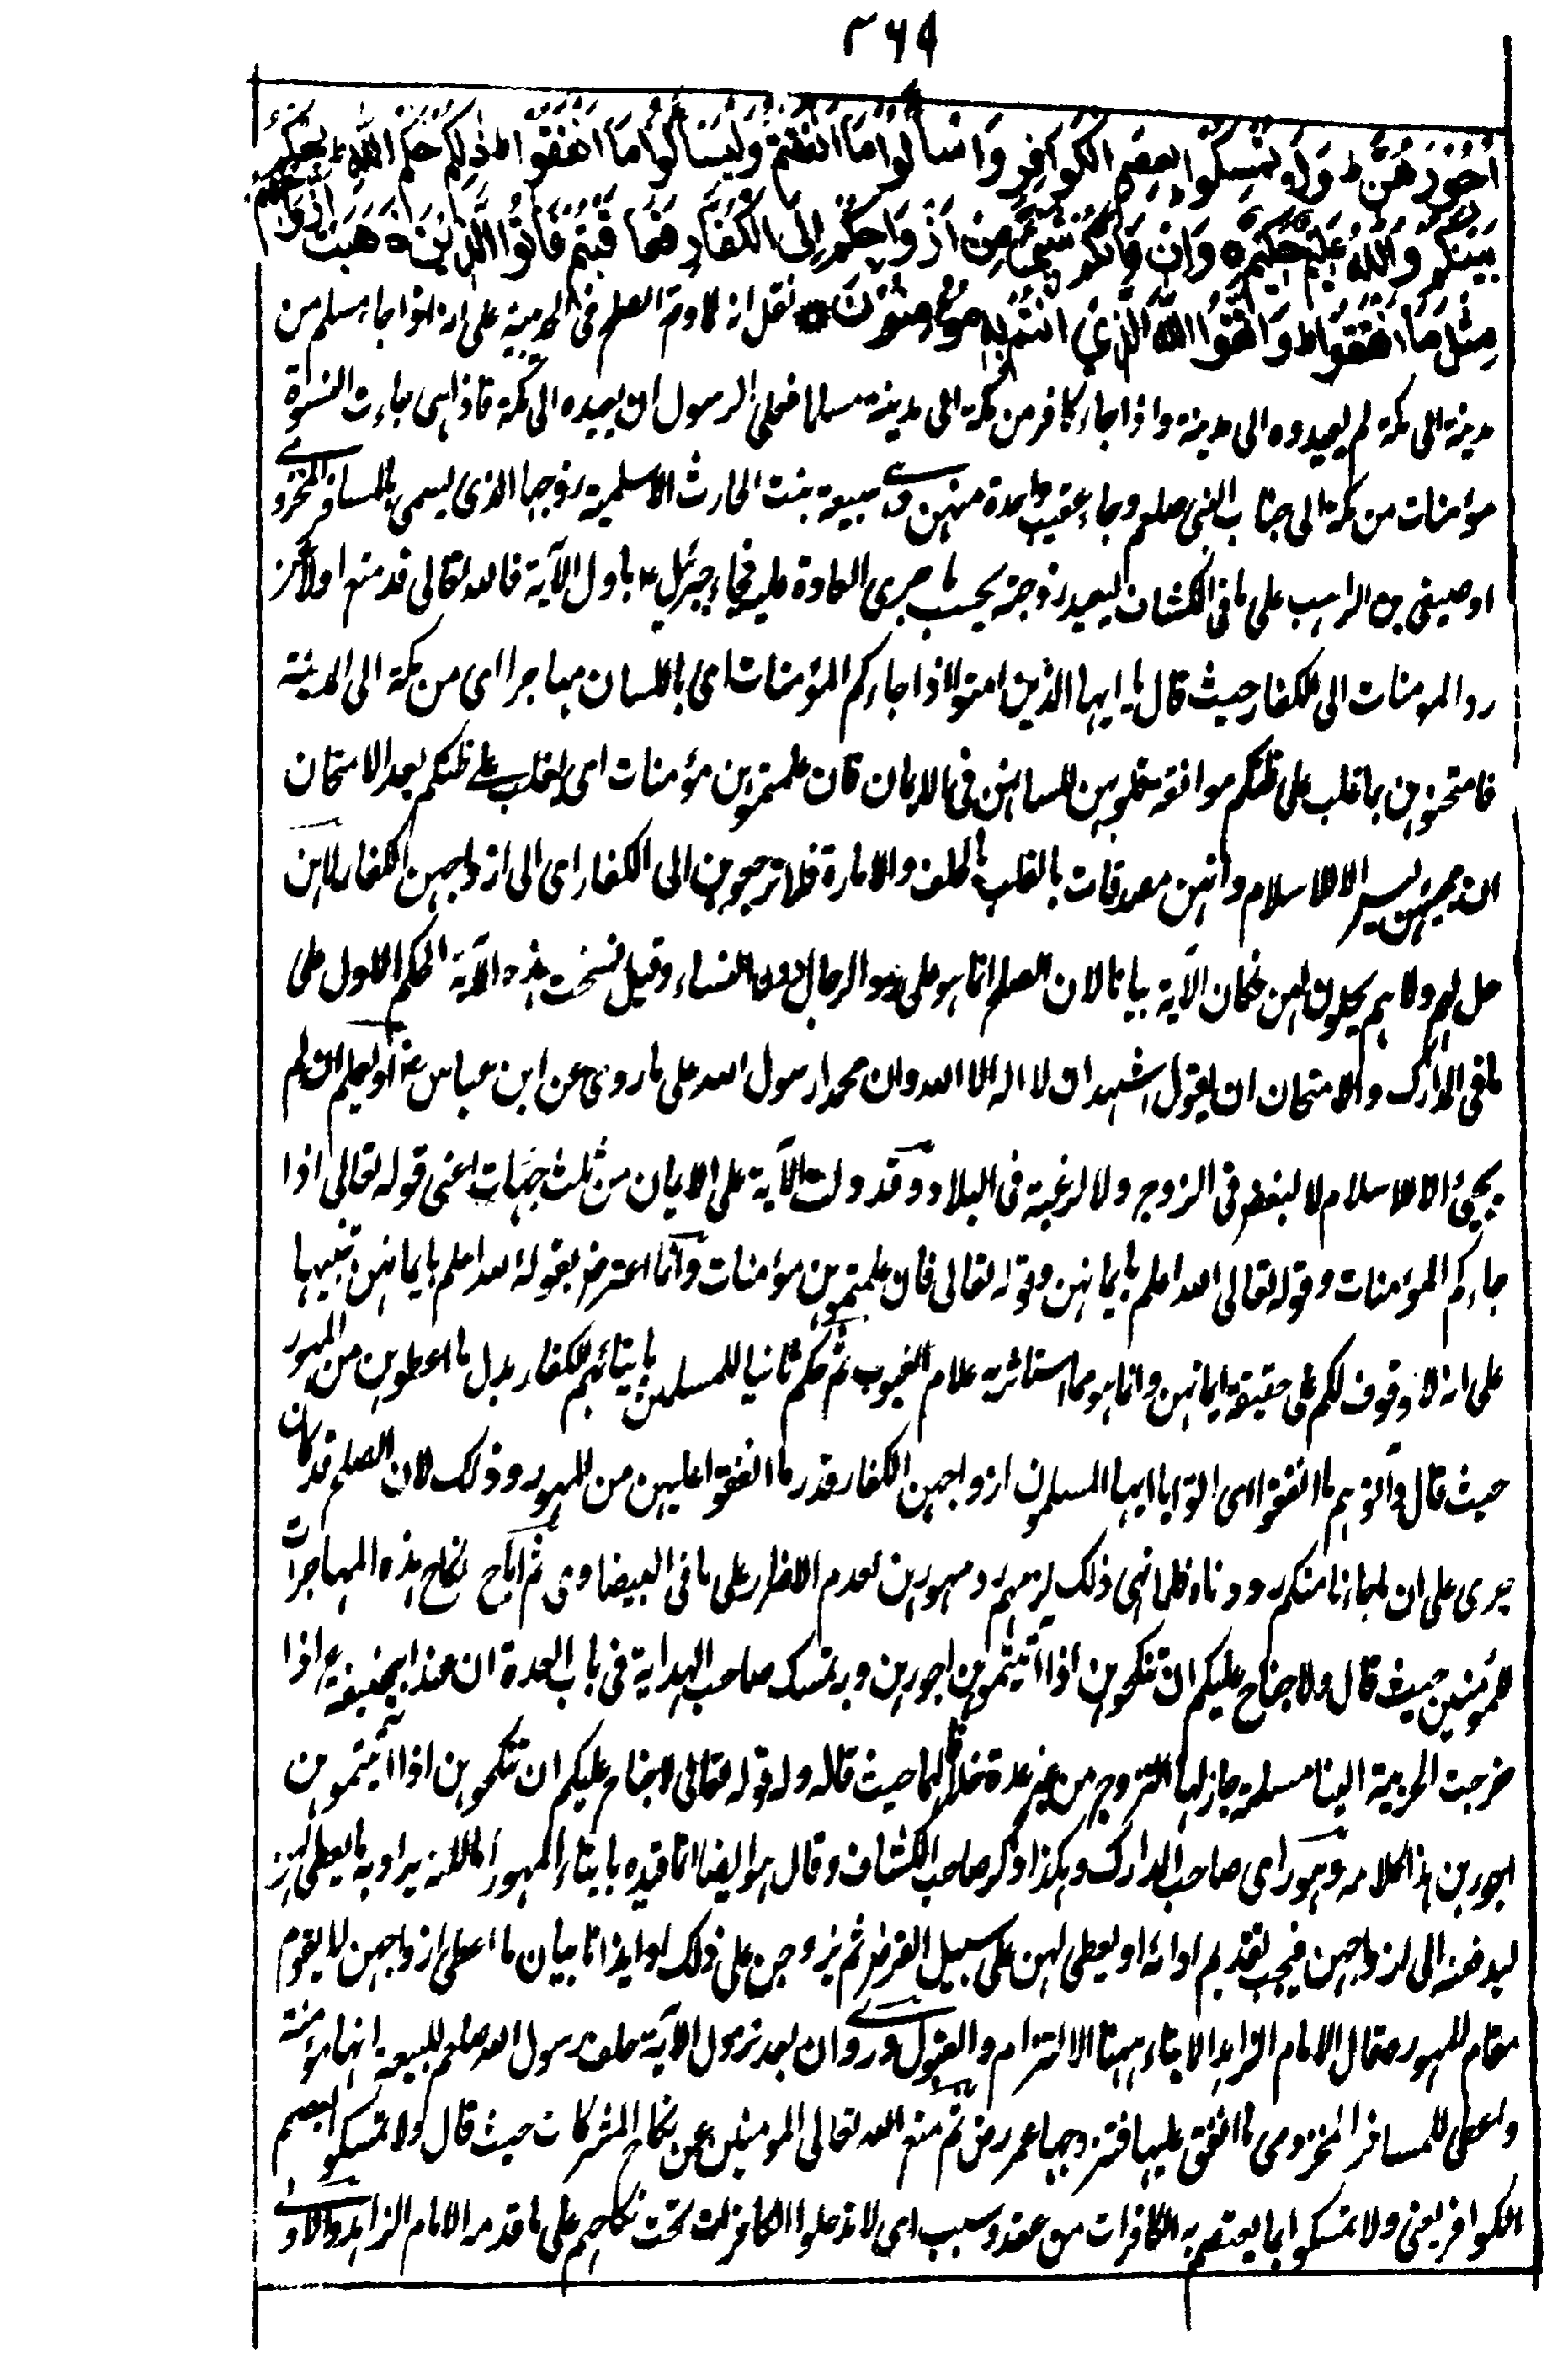 ٣٦٩
اُجُوْرَهُنَّ ط وَلَا تُمْسِكُوْا بِعِصَمِ الْكَوَافِرِ وَاسْاَلُوْا مَا اَنْفَقْتُمْ وَلْيَسْاَلُوْا مَا اَنْفَقُوْا ط ذٰلِكُمْ حُكْمُ اللّٰهِ ط يَحْكُمُ
بَيْنَكُمْ وَاللّٰهُ عَلِيْمٌ حَكِيْمٌ ه وَاِنْ فَاتَكُمْ شَيْءٌ مِّنْ اَزْوَاجِكُمْ اِلَى الْكُفَّارِ فَعَاقَبْتُمْ فَاٰتُوا الَّذِيْنَ ذَهَبَتْ اَزْوَاجُهُمْ
مِثْلَ مَا اَنْفَقُوْا ط وَاتَّقُوا اللّٰهَ الَّذِيْ اَنْتُمْ بِهِ مُؤْمِنُوْنَ نقل انه لما وقع الصلح فى الحديبية على انه اذا جاء مسلم من
مدينة الى مكة لم يعيدوه الى مدينة واذا جاء كافر من مكة الى مدينة مسلما فعلى الرسول ان يعيده الى مكة فاذا هى جاءت النسوة
مؤمنات من مكة الى جناب النبى صلعم وجاء عقيب واحدة منهن وهى سبيعة بنت الحارث الاسلمية زوجها الذى يسمى بالمسافر المخزومى
او صيفى بن الراهب على ما فى الكشاف ليعيد زوجته بحسب ما جرى العادة عليه فجاء جبرئيل ع باول الآية فالله تعالى قد منع اولا من
رد المومنات الى الكفار حيث قال يا ايها الذين امنوا اذا جاءكم المؤمنات اى باللسان مهاجرا اى من مكة الى المدينة
فامتحنوهن بما غلب على ظنكم موافقة قلوبهن للسانهن فى الايمان فان علمتموهن مؤمنات اى يغلب على ظنكم بعد الامتحان
ان مجيئهن ليس الا الاسلام وانهن مصدقات بالقلب بالحلف والامارة فلا ترجعوهن الى الكفار اى الى ازواجهن الكفار لا هن
حل لهم ولا هم يحلون لهن فكان الآية بيانا لان الصلح انما هو على رد الرجال دون النساء وقيل نسخت هذه الآية الحكم الاول على
ما فى المدارك والامتحان ان يقول اشهد ان لا اله الا الله وان محمدا رسول الله على ما روى عن ابن عباس رض او يعلم ان لم
يجئ الا للاسلام لا لبغض فى الزوج ولا لرغبة فى البلاد وقد دلت الآية على الايمان من ثلث جهات اعنى قوله تعالى اذا
جاءكم المؤمنات وقوله تعالى الله اعلم بايمانهن وقوله تعالى فان علمتموهن مؤمنات وانما اعترض بقوله الله اعلم بايمانهن تنبيها
على انه لا وقوف لكم على حقيقة ايمانهن وانما هو مما استاثر به علام الغيوب ثم حكم ثانيا للمسلمين بايتائهم للكفار بدل ما اعطوهن من المهور
حيث قال وآتوهم ما انفقوا اى اتوا يا ايها المسلمون ازواجهن الكفار قدر ما انفقوا عليهن من المهور وذلك لان الصلح قد كان
جرى على ان ما جاءنا منكم رددناه فلما نهى ذلك لزمهم رد مهورهن لعدم الاضرار على ما فى البيضاوى ثم اباح نكاح هذه المهاجرات
للمؤمنين حيث قال ولا جناح عليكم ان تنكحوهن اذا آتيتموهن اجورهن وبه تمسك صاحب الهداية فى باب العدة ان عند ابيحنيفة رح اذا
خرجت الحربية الينا مسلمة جاز لها التزوج من غير عدة خلافا لهما حيث قال وله قوله تعالى لا جناح عليكم ان تنكحوهن اذا اتيتموهن
اجورهن هذا كلامه وهو راى صاحب المدارك وهكذا ذكر صاحب الكشاف وقال هو ايضا انما قيده بايتاء المهور اما لانه يراد به ما يعطى لهن
ليدفعنه الى ازواجهن فيجب تقديم ادائه او يعطى لهن على سبيل القرض ثم يزوجن على ذلك او ايذانا ببيان ما اعطى ازواجهن لا يقوم
مقام المهور وقال الامام الزاهد الايتاء ههنا الالتزام والقبول وروى ان بعد نزول الآية حلف رسول الله صلعم لسبيعة انها مؤمنة
واعطى للمسافر المخزومى ما انفق عليها فتزوجها عمر رض ثم منع الله تعالى المومنين عن نكاح المشركات حيث قال ولا تمسكوا بعصم
الكوافر يعنى ولا تمسكوا بما يعتصم به الكافرات من عقد وسبب اى لا تدخلوا الكافرات تحت نكاحهم على ما قدمه الامام الزاهد والاولى